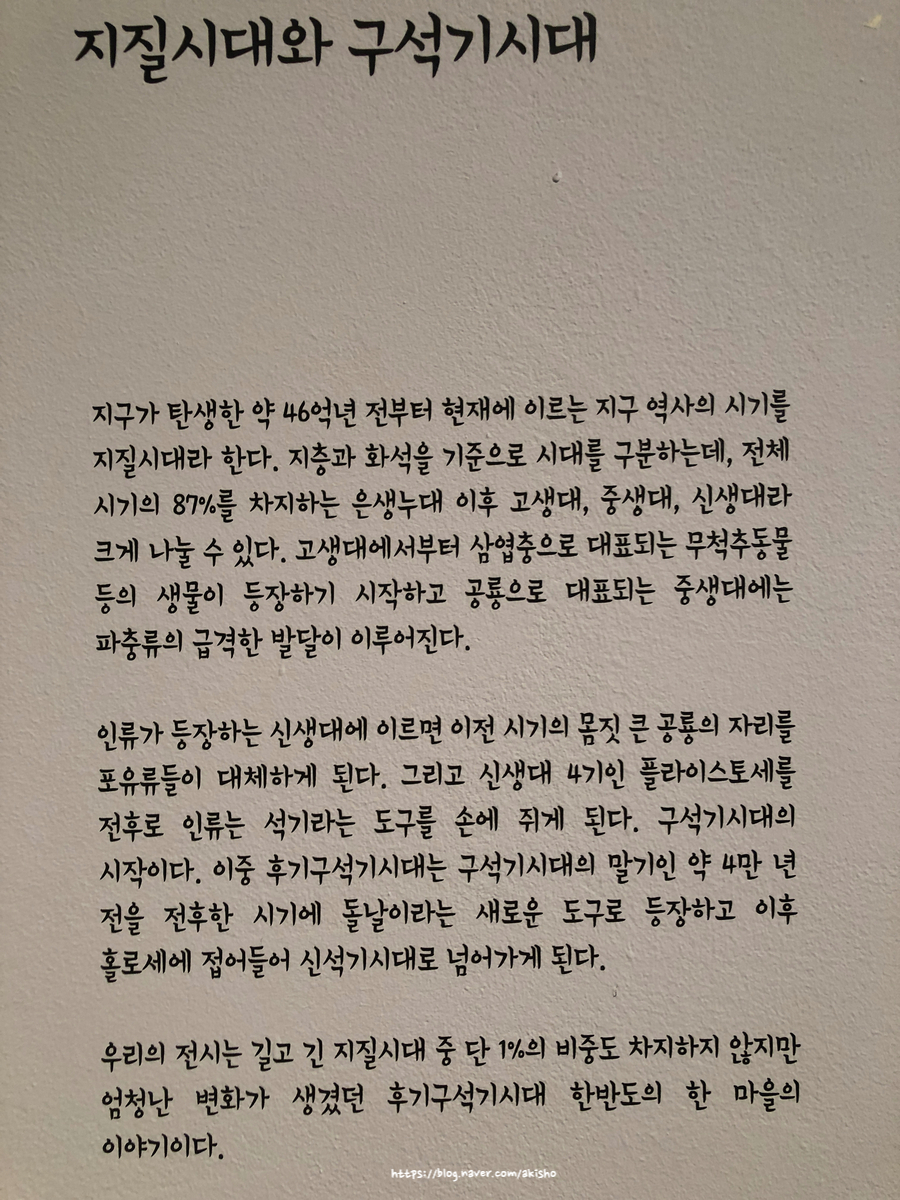 지질시대와 구석기시대
지구가 탄생한 약 46억년 전부터 현재에 이르는 지구 역사의 시기를
지질시대라 한다. 지층과 화석을 기준으로 시대를 구분하는데, 전체
시기의 87%를 차지하는 은생누대 이후 고생대, 중생대, 신생대라
크게 나눌 수 있다. 고생대에서부터 삼엽충으로 대표되는 무척추동물
등의 생물이 등장하기 시작하고 공룡으로 대표되는 중생대에는
파충류의 급격한 발달이 이루어진다.
인류가 등장하는 신생대에 이르면 이전 시기의 몸짓 큰 공룡의 자리를
포유류들이 대체하게 된다. 그리고 신생대 4기인 플라이스토세를
전후로 인류는 석기라는 도구를 손에 쥐게 된다. 구석기시대의
시작이다. 이중 후기구석기시대는 구석기시대의 말기인 약 4만 년
전을 전후한 시기에 돌날이라는 새로운 도구로 등장하고 이후
홀로세에 접어들어 신석기시대로 넘어가게 된다.
우리의 전시는 길고 긴 지질시대 중 단 1%의 비중도 차지하지 않지만
엄청난 변화가 생겼던 후기구석기시대 한반도의 한 마을의
이야기이다.
https://blog.naver.com/akisho